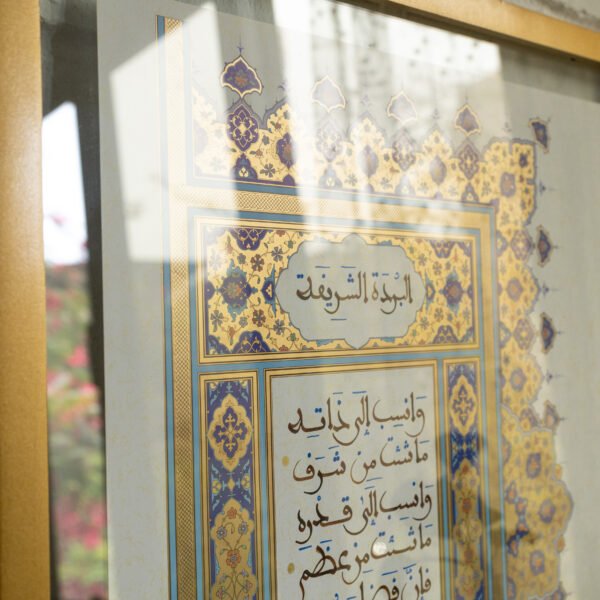 البردة الشريفة
وانسب إلى ذاته
ما شئت من شرف
وانسب إلى قدره
ما شئت من عظم
فإن فضل